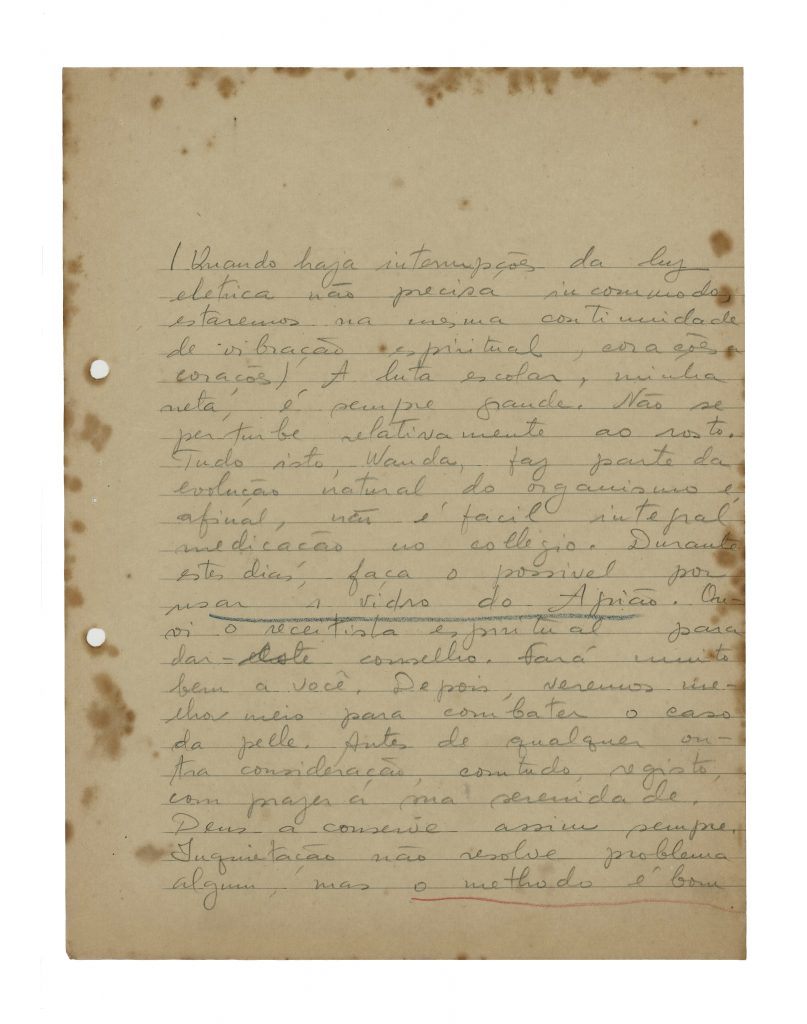 (Quando haja interrupções da luz
eletrica não precisa incommodo,
estaremos na mesma continuidade
de vibração espiritual, corações a
corações) A luta escolar, minha
neta, é sempre grande. Não se
perturbe relativamente ao rosto.
Tudo isto, Wanda, faz parte da
evolução natural do organismo e,
afinal, não é facil integral
medicação no collegio. Durante
estes dias, faça o possivel por
usar 1 vidro do Apião. Ou-
vi o receitista espiritual para
dar-este conselho. Fará muito
bem a você. Depois, veremos me-
lhor meio para combater o caso
da pelle. Antes de qualquer ou-
tra consideração, comtudo, registo,
com prazer á sua serenidade.
Deus a conserve assim sempre.
Inquietação não resolve problema
algum, mas o methodo é bom